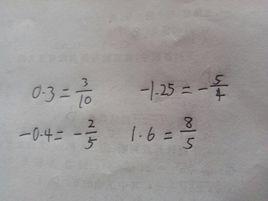 0.3 = 3/10   -1.25 = -5/4
-0.4 = -2/5   1.6 = 8/5